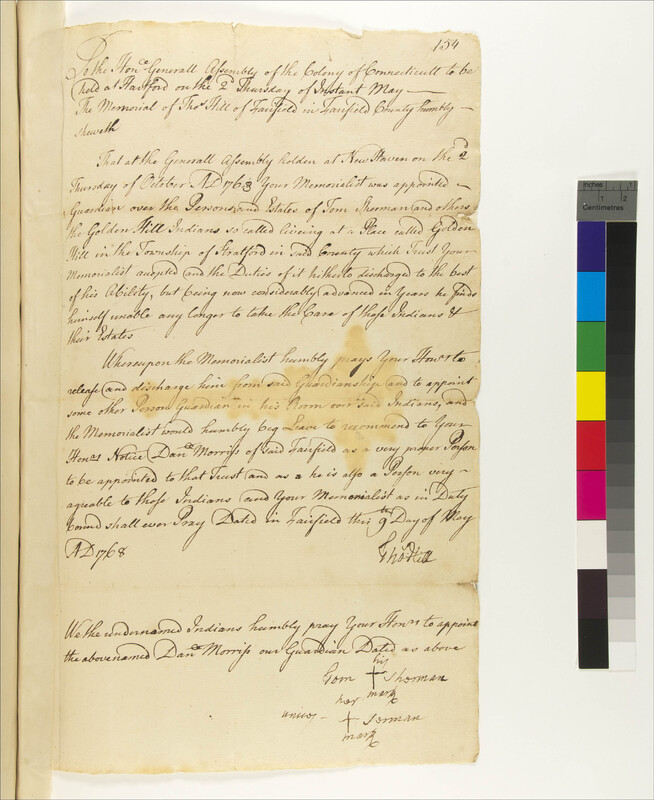 154
To the Honᶜᵉ Generall Assembly of the Colony of Connecticutt to be
held at Hartford on the 2ᵈ Thursday of Instant May
The Memorial of Thoˢ Hill of Fairfield in Fairfield County humbly
sheweth
That at the Generall Assembly holden at New Haven on the 2ᵈ
Thursday of October AD 1763 Your Memorialist was appointed
Guardian over the Persons and Estates of Tom Sherman and others
the Golden Hill Indians so called liveing at a Place called Golden
Hill in the Township of Stratford in said County which Trust Your
Memorialist accepted and the Duties of it hitherto discharged to the best
of his Ability, but being now considerably advanced in Years he finds
himself unable any longer to take the Care of those Indians &
their Estates
Whereupon the Memorialist humbly prays Your Honʳˢ to
release and discharge him from said Guardianship and to appoint
some other Person Guardian in his Room over said Indians, and
the Memorialist would humbly beg Leave to recommend to Your
Honʳˢ Notice Danˡ Morriss of said Fairfield as a very proper Person
to be appointed to that Trust and as a he is also a Person very
agreable to those Indians and Your Memorialist as in Duty
bound shall ever Pray Dated in Fairfield this 9ᵗʰ Day of May
AD 1768 Thoˢ Hill
We the undernamed Indians humbly pray Your Honʳˢ to appoint
the abovenamed Danˡ Morriss our Guardian Dated as above
his
Tom + Sherman
mark
her
+ Serman
mark
Inches 1
Centimetres 1 2